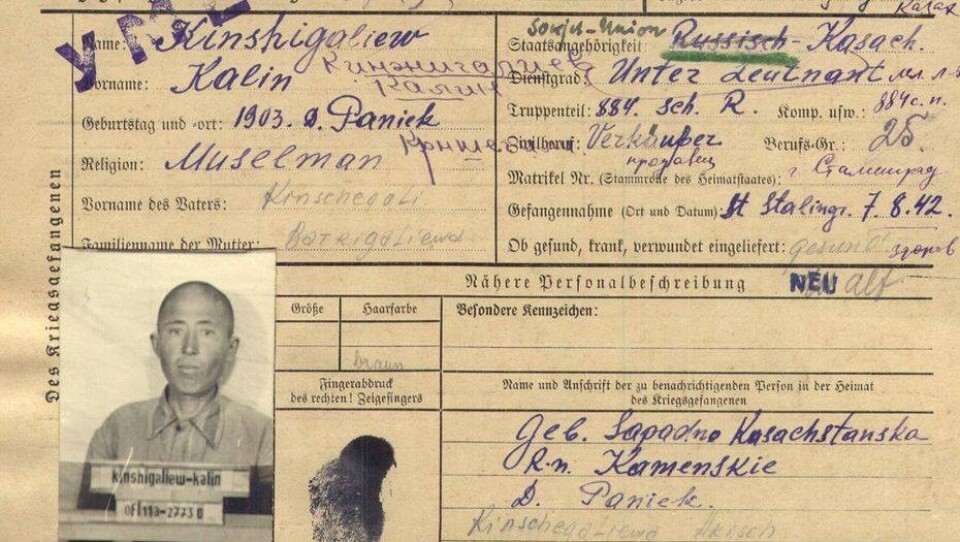 Казах
УМЕ
Name: Kinshigaliew
Кинжигалиев
Vorname: Kalin
Калин
Geburtstag und -ort: 1903. D. Paniek
Religion: Muselman
Vorname des Vaters: Kinschegali
Familienname der Mutter:
Sowjet-Union
Staatsangehörigkeit: Russisch-Kasach.
Dienstgrad: Unter Leutnant мл. л-т
Truppenteil: 884. Sch. R. Komp. usw.: 884 с.п.
Zivilberuf: Verkäufer Berufs-Gr.: 25.
продавец
Matrikel Nr. (Stammrolle des Heimatstaates): г Сталинград
Gefangennahme (Ort und Datum): St Stalingr. 7.8.42.
Ob gesund, krank, verwundet eingeliefert: gesund здоров
Des Kriegsgefangenen
Nähere Personalbeschreibung
NEU alt
Größe
Haarfarbe
braun
Besondere Kennzeichen:
Fingerabdruck
des rechten! Zeigefingers
Name und Anschrift der zu benachrichtigenden Person in der Heimat
des Kriegsgefangenen
Geb. Sapadno Kasachstanska
R-n. Kamenskie
D. Paniek.
Kinschegaliewa
kinshigaliew-kalin